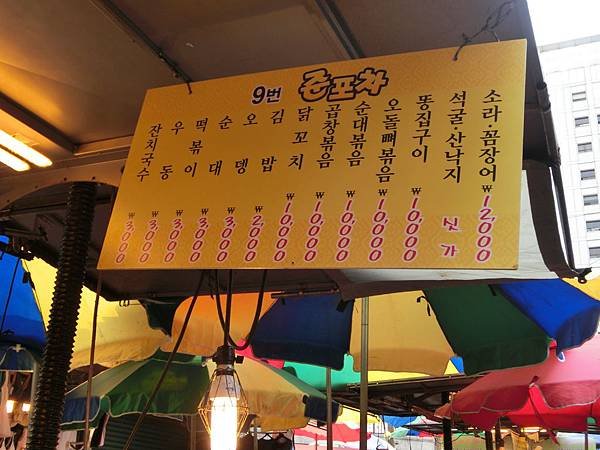 9번 포차
잔치국수 ₩3,000
우동 ₩3,000
떡볶이 ₩3,000
순대 ₩3,000
오뎅 ₩3,000
김밥 ₩2,000
닭꼬치 ₩10,000
곱창볶음 ₩10,000
순대볶음 ₩10,000
오돌뼈볶음 ₩10,000
똥집구이 ₩10,000
석굴·산낙지 싯가
소라·꼼장어 ₩12,000